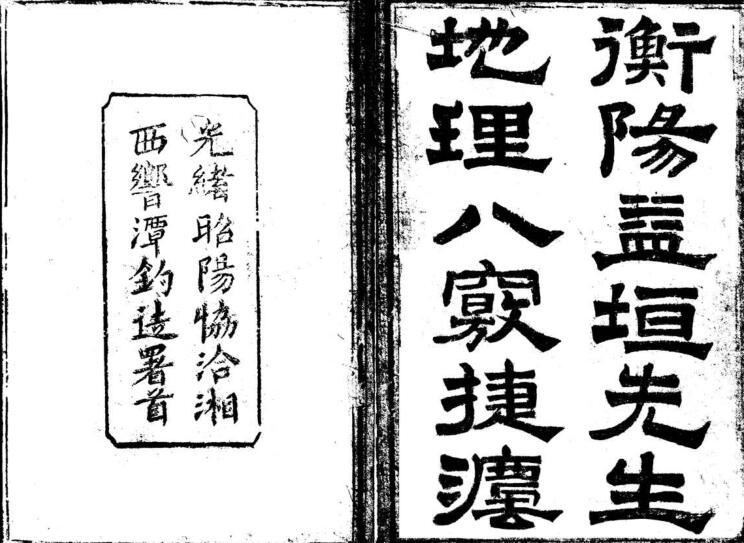 衡陽益垣先生
地理八竅捷灋
光緒昭陽協洽湘
西響潭釣徒署首